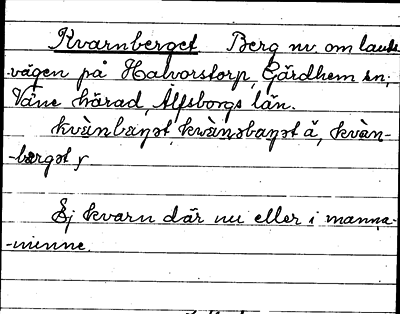 Kvarnberget Berg nv. om lands
vägen på Halvorstorp, Gärdhem sn,
Väne härad, Älfsborgs län.
kvànbaŋət, kvànəbaŋət ä, kvàn-
-bærgət y
Ej kvarn där nu eller i manna-
-minne.